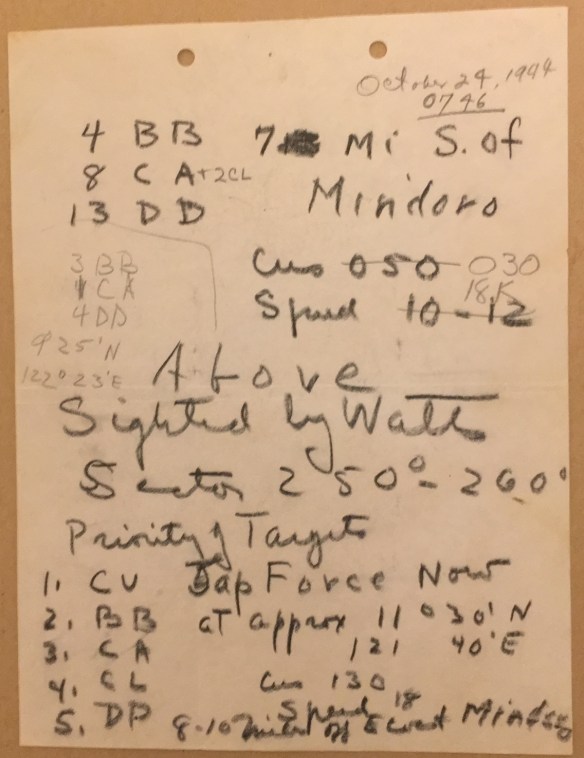 October 24, 1944
0746
4 BB 7 Mi S. of
8 CA +2CL Mindoro
13 DD
3 BB Cus 050 030
1 CA 18 K
4 DD Speed 10-12
9° 25' N
122° 23' E
Above
Sighted by Watts
Sector 250°-260°
Priority of Targets
1. CV Jap Force Now
2. BB at approx 11° 30' N
3. CA 121 40' E
4. CL Cus 130
5. DD Speed 18
8-10 Miles off E coast Mindoro